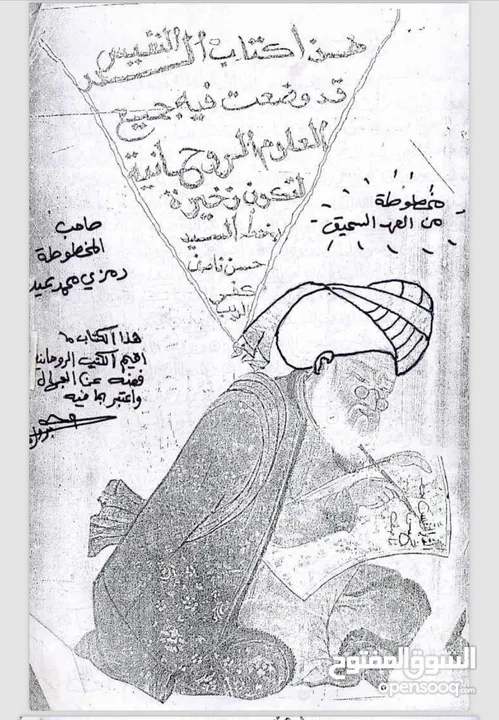 هذا كتاب السر النفيس
قد وضعت فيه جميع
العلوم الروحانية
لتكون ذخيرة
بخط السيد
حسن ناصر
مخطوطة
من العهد السحيق
صاحب
المخطوطة
رمزي محمد عيد
هذا الكتاب
اقيم الكتب الروحانية
فصنه عن الجهال
واعتبر بما فيه
السوق المفتوح
opensooq.com